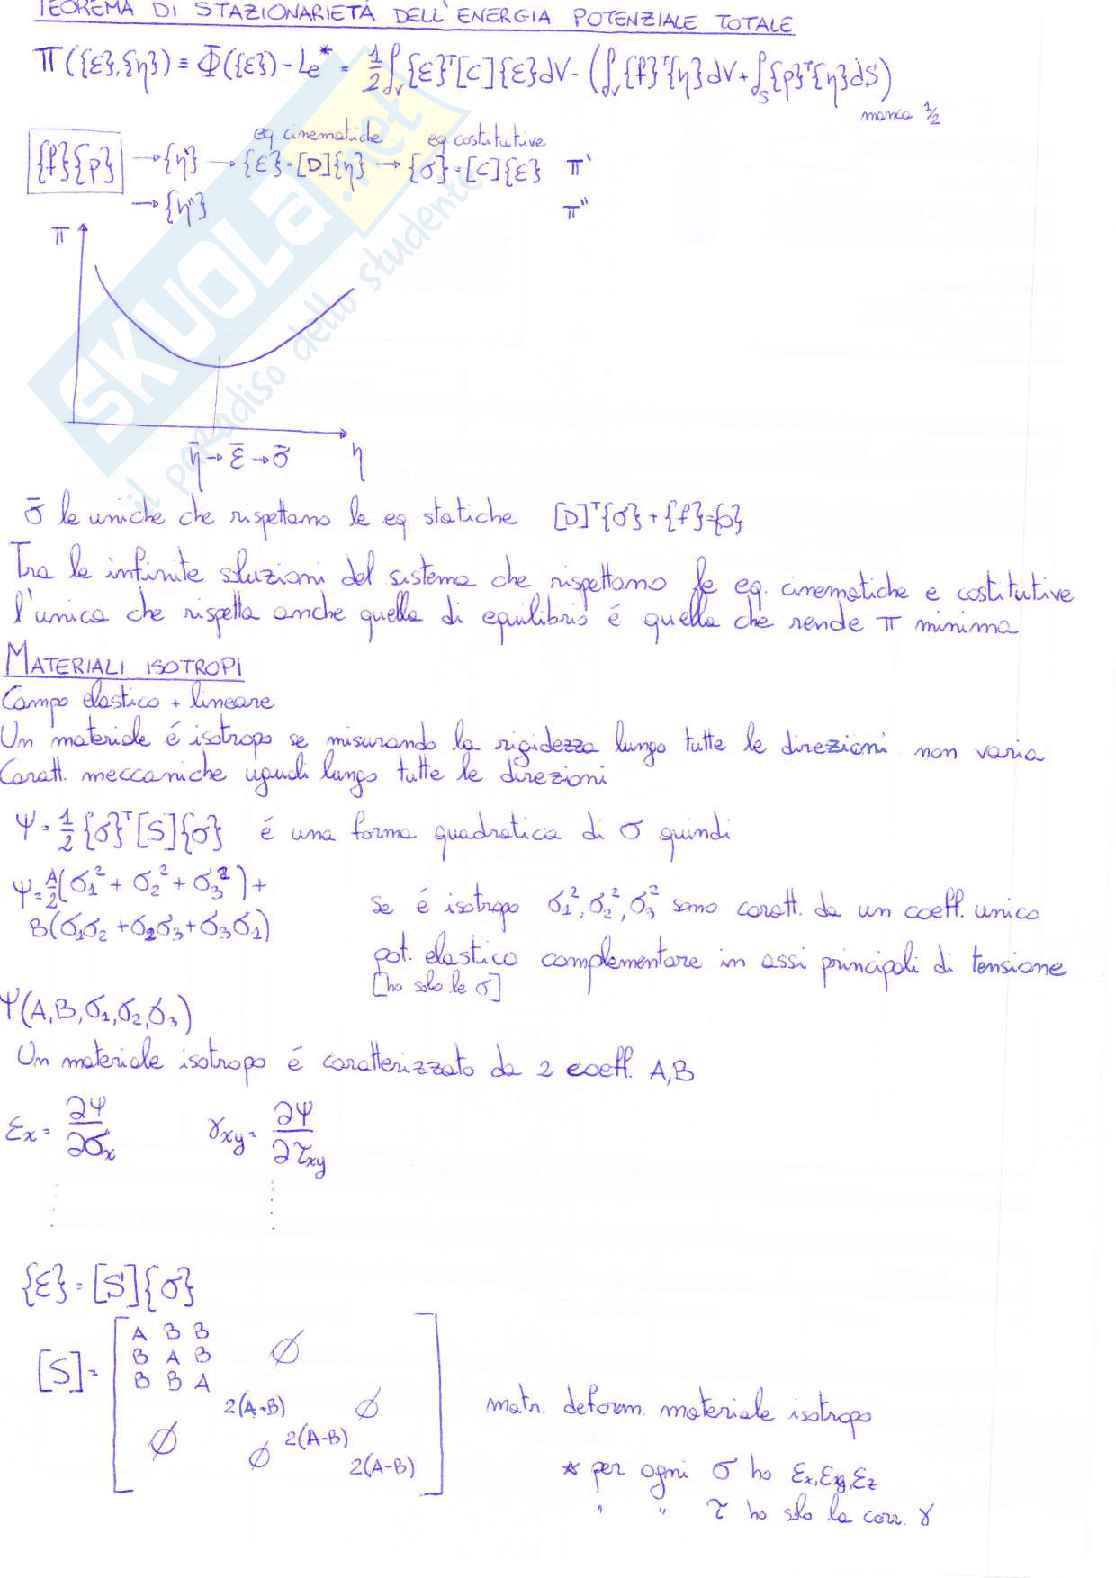 TEOREMA DI STAZIONARIETÀ DELL'ENERGIA POTENZIALE TOTALE
Π({ε},{η}) ≡ Φ({ε}) - Le* = 1/2 ∫v {ε}ᵀ[C]{ε}dV - (∫v {f}ᵀ{η}dV + ∫s {p}ᵀ{η}dS)
manca 1/2
eq cinematiche eq costitutive
{f}{p} → {η'} → {ε}=[D]{η} → {σ}=[C]{ε} π'
→ {η''} π''
π
η̄ → ε̄ → σ̄ η
σ̄ le uniche che rispettano le eq statiche [D]ᵀ{σ}+{f}={0}
Tra le infinite soluzioni del sistema che rispettano le eq. cinematiche e costitutive
l'unica che rispetta anche quella di equilibrio é quella che rende π minima
MATERIALI ISOTROPI
Campo elastico + lineare
Un materiale é isotropo se misurando la rigidezza lungo tutte le direzioni non varia
Caratt. meccaniche uguali lungo tutte le direzioni
Ψ = 1/2 {σ}ᵀ[S]{σ} é una forma quadratica di σ quindi
Ψ = A/2(σ₁² + σ₂² + σ₃²) +
B(σ₁σ₂ + σ₂σ₃ + σ₃σ₁)
Se é isotropo σ₁², σ₂², σ₃² sono caratt. da un coeff. unico
pot. elastico complementare in assi principali di tensione
[ho solo le σ]
Ψ(A,B,σ₁,σ₂,σ₃)
Un materiale isotropo é caratterizzato da 2 coeff. A,B
εx = ∂Ψ/∂σx γxy = ∂Ψ/∂τxy
{ε} = [S]{σ}
[S] =
A B B
B A B ∅
B B A
2(A-B) ∅
∅ ∅ 2(A-B)
2(A-B)
matr. deform. materiale isotropo
* per ogni σ ho εx, εy, εz
" " τ ho solo la corr. γ
SKUOLA.net
il paradiso dello studente